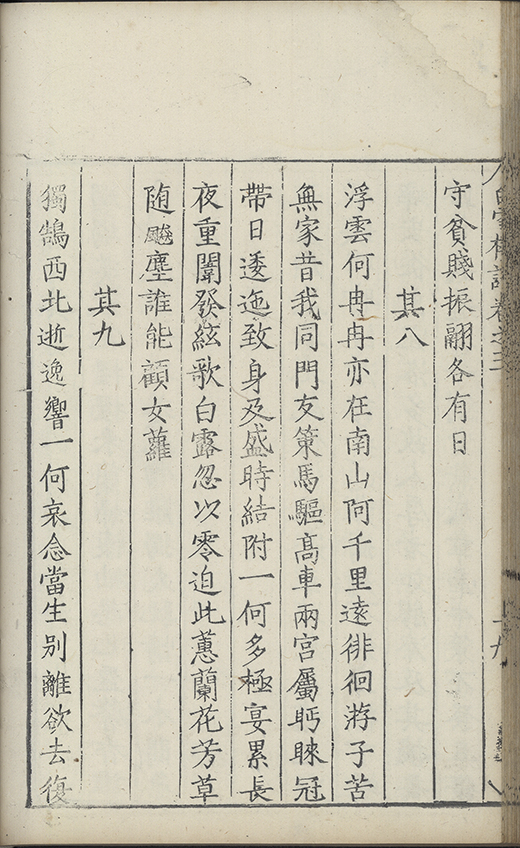 守貧賤振翮各有日
其八
浮雲何冉冉亦在南山阿千里遠徘徊游子苦
無家昔我同門友策馬驅高車兩宮屬眄睞冠
帶日逶迤致身及盛時結附一何多極宴累長
夜重闈發絃歌白露忽以零迫此蕙蘭花芳草
随飈塵誰能顧女蘿
其九
獨鵠西北逝逸響一何哀念當生別離欲去復